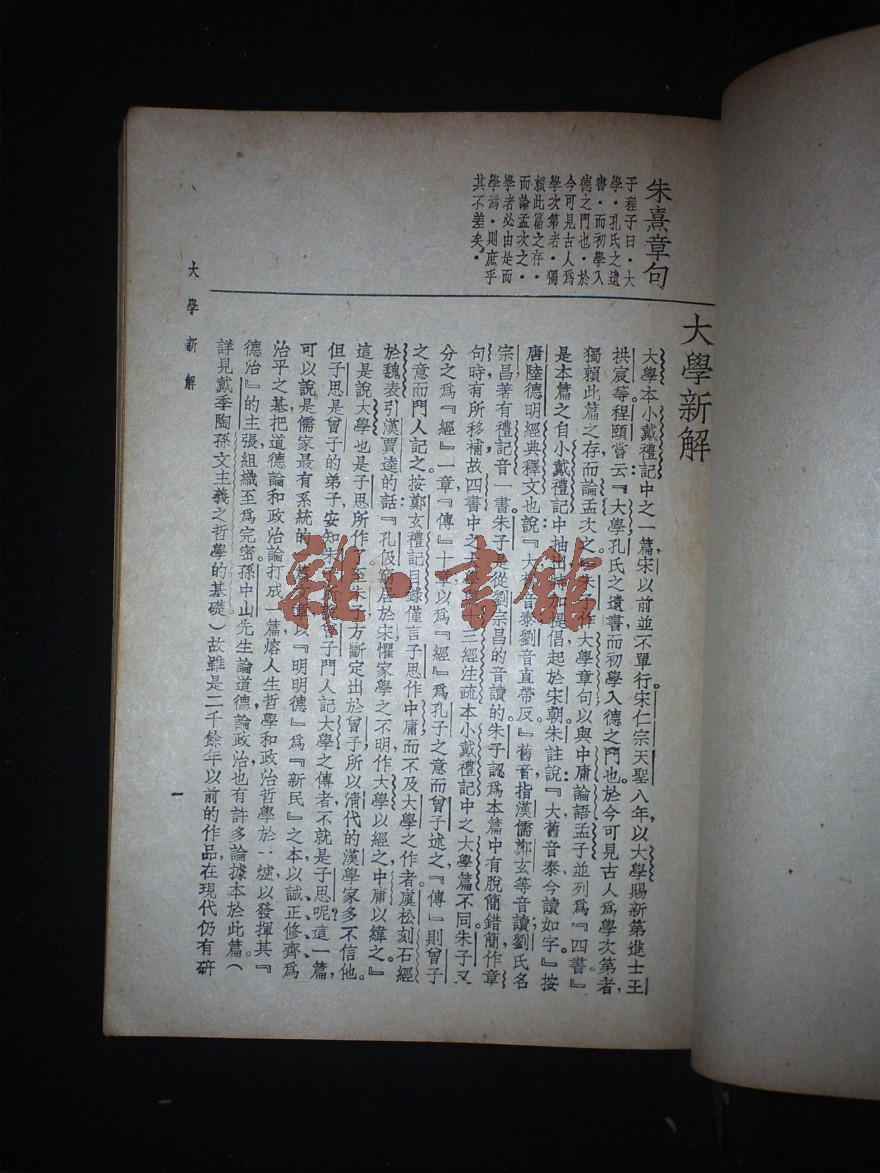 朱熹章句
子程子曰・大
學・孔氏之遺
書・而初學入
德之門也・於
今可見古人爲
學次第者・獨
賴此篇之存・
而論孟次之・
學者必由是而
學焉・則庶乎
其不差矣・
大學新解
大學本小戴禮記中之一篇宋以前並不單行。宋仁宗天聖八年，以大學賜新第進士王
拱宸等程頤嘗云：『大學，孔氏之遺書而初學入德之門也。於今可見古人爲學次第者，
獨賴此篇之存而論孟次之。作大學章句以與中庸論語孟子並列爲『四書』
是本篇之自小戴禮記中抽出，倡起於宋朝。朱註說：『大舊音泰今讀如字』按
唐陸德明經典釋文也說：『大音泰劉音直帶反。』舊音，指漢儒鄭玄等音讀；劉氏名
宗昌著有禮記音一書。朱子從劉宗昌的音讀的。朱子認爲本篇中有脫簡錯簡，作章
句時，有所移補，故四書中之三經注疏本小戴禮記中之大學篇不同。朱子又
分之爲『經』一章『傳』十章，以爲『經』爲孔子之意而曾子述之『傳』則曾子
之意而門人記之。按鄭玄禮記目錄僅言子思作中庸而不及大學之作者。虞松刻石經
於魏表引漢賈逵的話：『孔伋窮居於宋懼家學之不明作大學以經之中庸以緯之。』
這是說大學也是子思所作了。至朱子方斷定出於曾子所以清代的漢學家多不信他。
但子思是曾子的弟子，安知朱子門人記大學之傳者，不就是子思呢？這一篇，
可以說是儒家最有系統的以『明明德』爲『新民』之本以誠、正、修、齊、爲
治平之基把道德論和政治論打成一篇熔人生哲學和政治哲學於一爐以發揮其『
德治』的主張，組織至爲完密。孫中山先生論道德，論政治，也有許多論據本於此篇。（
詳見戴季陶孫文主義之哲學的基礎）故雖是二千餘年以前的作品，在現代仍有研
大學新解
一
雜・書館